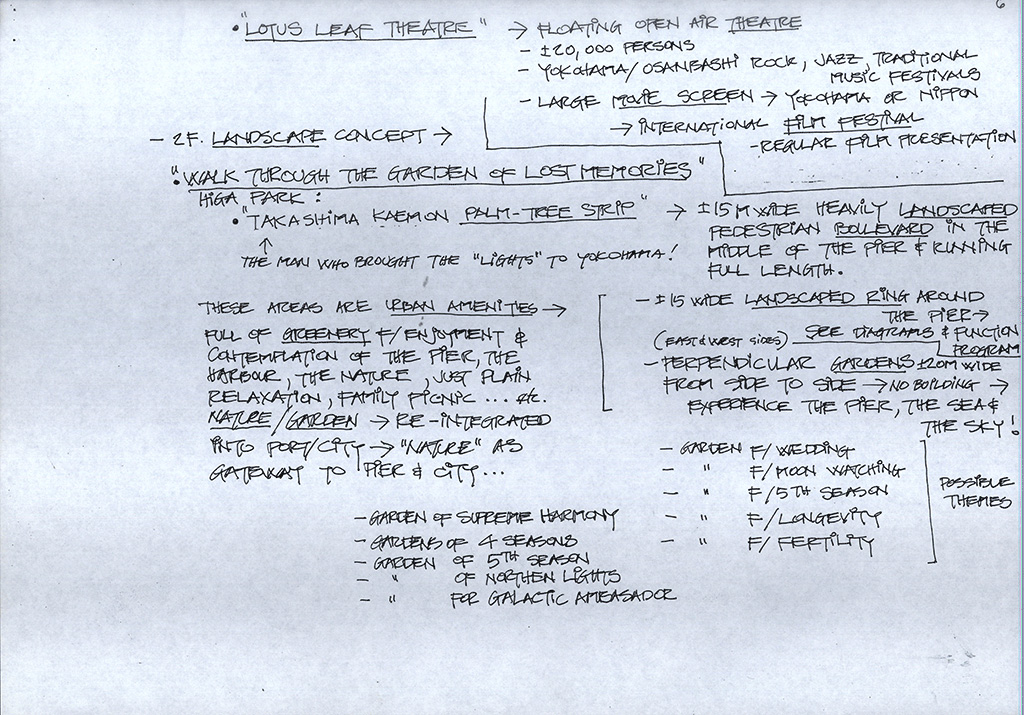 6
• "LOTUS LEAF THEATRE" → FLOATING OPEN AIR THEATRE
- ±20,000 PERSONS
- YOKOHAMA/OSANBASHI ROCK, JAZZ, TRADITIONAL
MUSIC FESTIVALS
- LARGE MOVIE SCREEN → YOKOHAMA OR NIPPON
→ INTERNATIONAL FILM FESTIVAL
- REGULAR FILM PRESENTATION
- 2F. LANDSCAPE CONCEPT →
• "WALK THROUGH THE GARDEN OF LOST MEMORIES"
HIGA PARK :
• "TAKASHIMA KAEMON PALM-TREE STRIP" → ±15 M WIDE HEAVILY LANDSCAPED
PEDESTRIAN BOULEVARD IN THE
MIDDLE OF THE PIER & RUNNING
FULL LENGTH.
↑
THE MAN WHO BROUGHT THE "LIGHTS" TO YOKOHAMA!
THESE AREAS ARE URBAN AMENITIES →
FULL OF GREENERY F/ENJOYMENT &
CONTEMPLATION OF THE PIER, THE
HARBOUR, THE NATURE, JUST PLAIN
RELAXATION, FAMILY PICNIC ... etc.
NATURE/GARDEN → RE-INTEGRATED
INTO PORT/CITY → "NATURE" AS
GATEWAY TO PIER & CITY ...
- ±15 WIDE LANDSCAPED RING AROUND
THE PIER →
(EAST & WEST SIDES) SEE DIAGRAMS & FUNCTION
PROGRAM
- PERPENDICULAR GARDENS ±20M WIDE
FROM SIDE TO SIDE → NO BUILDING →
EXPERIENCE THE PIER, THE SEA &
THE SKY!
- GARDEN F/WEDDING
- " F/MOON WATCHING
- " F/5TH SEASON
- " F/LONGEVITY
- " F/FERTILITY
POSSIBLE
THEMES
- GARDEN OF SUPREME HARMONY
- GARDENS OF 4 SEASONS
- GARDEN OF 5TH SEASON
- " OF NORTHEN LIGHTS
- " FOR GALACTIC AMBASADOR